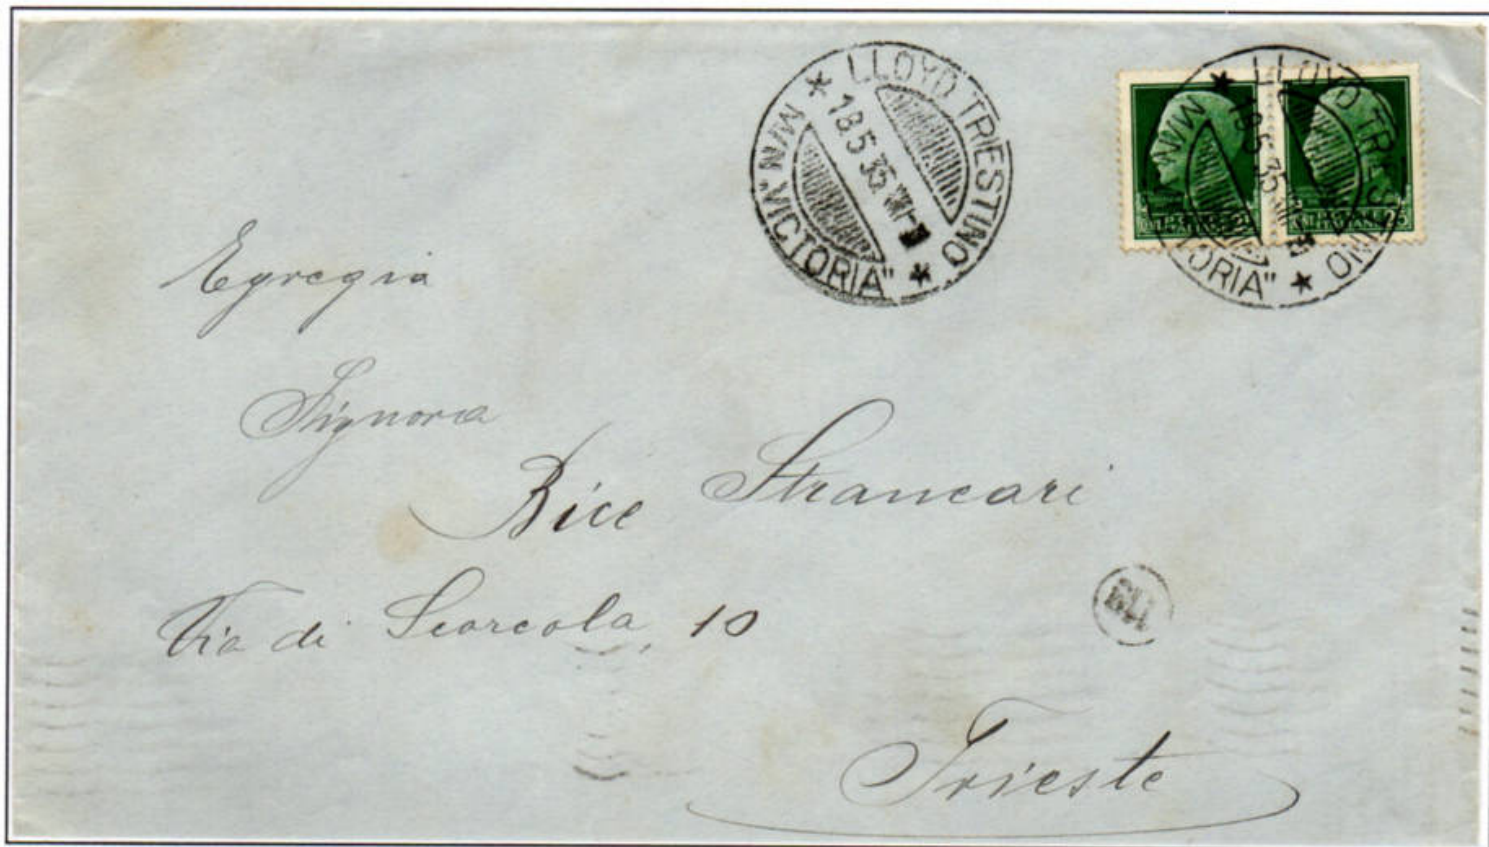 * LLOYD TRIESTINO *
M/N "VICTORIA"
18.5.35.XIII
* LLOYD TRIESTINO *
M/N "VICTORIA"
18.5.35.XIII
Egregia
Signora
Bice Strancari
Via di Scorcola, 10
Trieste